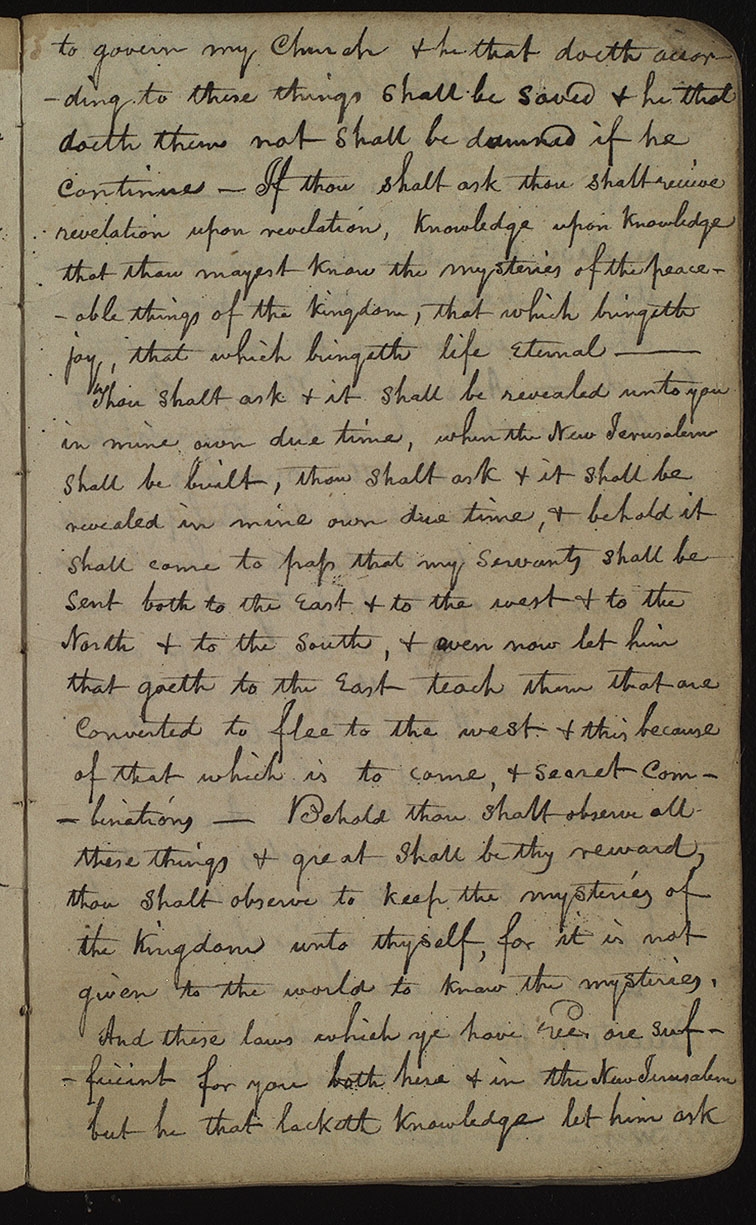 to govern my Church & he that doeth accor-
-ding to these things Shall be Saved & he that
doeth them not Shall be damned if he
continue — If thou shalt ask thou shalt recieve
revelation upon revelation, Knowledge upon Knowledge
that thou mayest know the mysteries of the peace-
-able things of the kingdom, that which bringeth
joy, that which bringeth life Eternal ———
Thou Shalt ask & it Shall be revealed unto you
in mine own due time, when the New Jerusalem
Shall be built, thou Shalt ask & it Shall be
revealed in mine own due time, & behold it
Shall come to pass that my Servants Shall be
Sent both to the East & to the west & to the
North & to the South, & even now let him
that goeth to the East teach them that are
Converted to flee to the west & this because
of that which is to come, & Secret Com-
-binations — Behold thou Shalt observe all
these things & great Shall be thy reward,
thou Shalt observe to keep the mysteries of
the Kingdom unto thyself, for it is not
given to the world to know the mysteries.
And these laws which ye have Rec. are Suf-
-ficient for you both here & in the New Jerusalem
but he that lacketh Knowledge let him ask